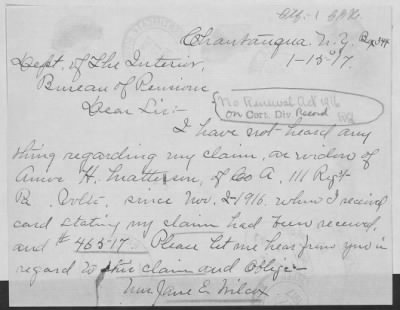 Chautauqua N.Y. Box 344
1-15-'17.
Dept. of The Interior,
Bureau of Pensions
Dear Sir:-
No Renewal Act 1916
on Cert. Div. Record
I have not heard any
thing regarding my claim, as widow of
H. Matterson, of Co A, 111 Regt
Vols. since Nov. 2-1916. when I received
card stating my claim had been received,
and # 465-17. Please let me hear from you in
regard to this claim and oblige
Mrs. Jane E. Wilcox